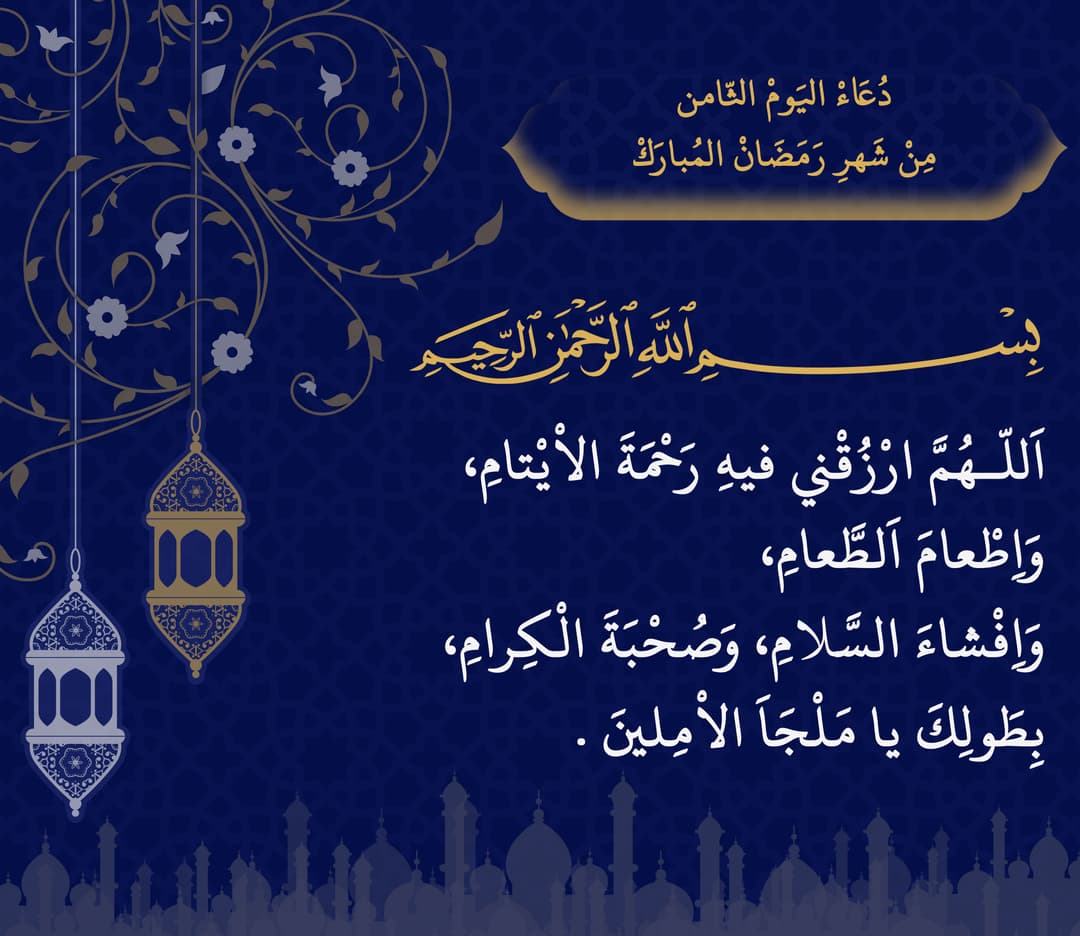 دُعَاءْ اليَومْ الثّامن
مِنْ شَهرِ رَمَضَانْ المُبارَكْ
بِسْمِ ٱللَّهِ ٱلرَّحْمَٰنِ ٱلرَّحِيمِ
اَللّـهُمَّ ارْزُقْني فيهِ رَحْمَةَ الاْيْتامِ،
وَاِطْعامَ اَلطَّعامِ،
وَاِفْشاءَ السَّلامِ، وَصُحْبَةَ الْكِرامِ،
بِطَولِكَ يا مَلْجَاَ الاْمِلينَ .